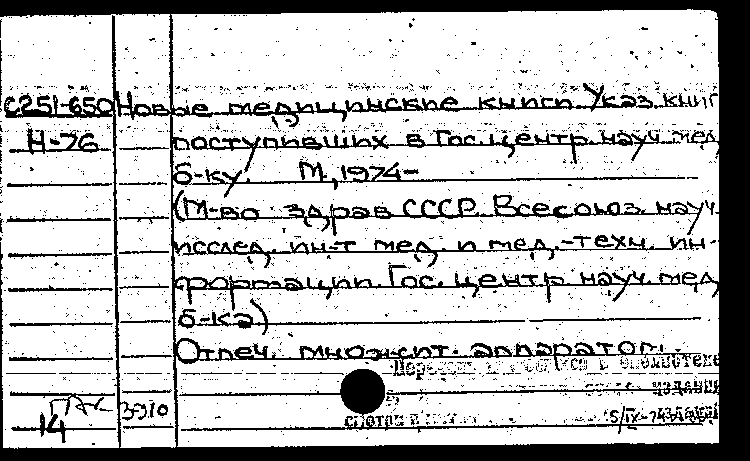 С251-650 Новые медицинские книги. Указ. книг
Н-76 поступивших в Гос. центр. науч. мед.
б-ку. М., 1974-
(М-во здрав СССР. Всесоюз. науч.
исслед. ин-т мед. и мед.-техн. ин-
формации. Гос. центр. науч. мед.
б-ка)
Отпеч. множит. аппаратом.
в библиотеке
издания
смотри
14